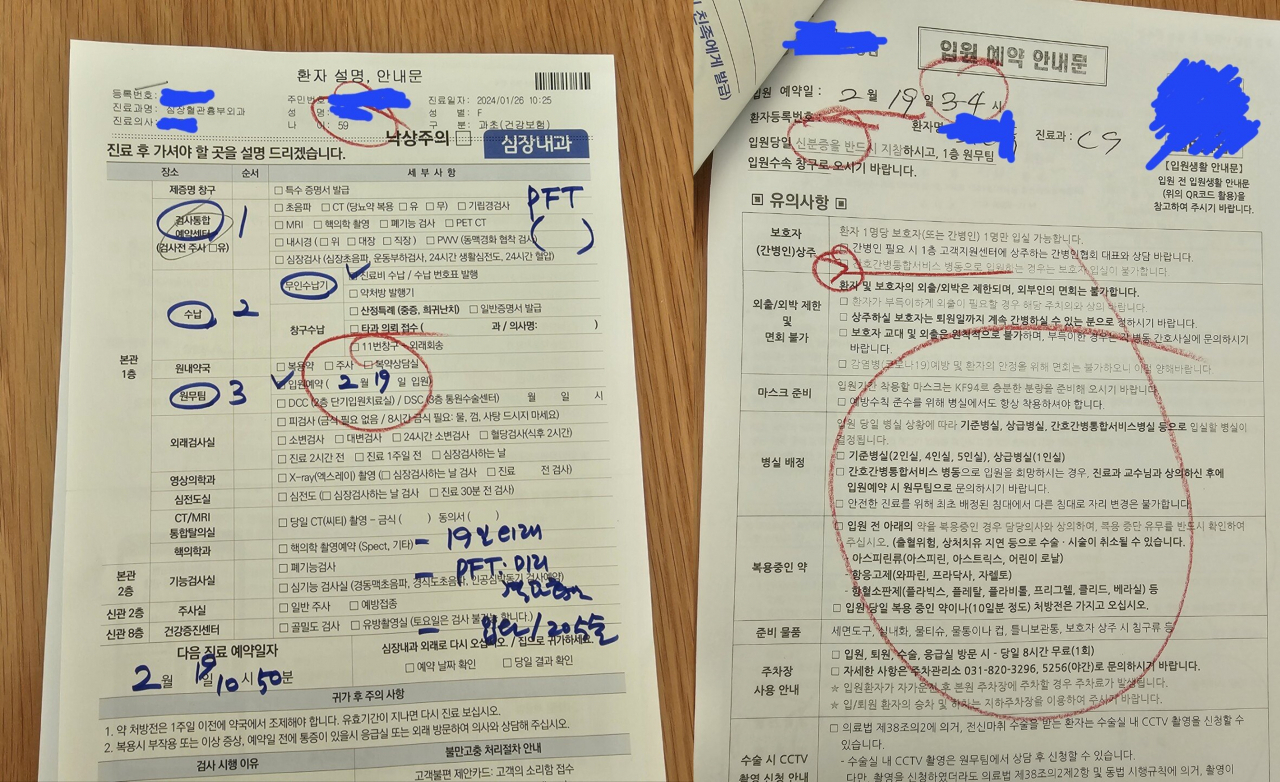 환자 설명, 안내문
등록번호:
진료과명: 심장혈관흉부외과
진료의사:
주민번호
성 명:
나 이: 59
진료일자: 2024/01/26 10:25
성 별: F
구 분: 과초(건강보험)
낙상주의 □
심장내과
진료 후 가셔야 할 곳을 설명 드리겠습니다.
장소 순서 세 부 사 항
제증명 창구 □ 특수 증명서 발급
검사통합 예약센터 (검사전 주사 □유) 1
□ 초음파 □ CT (당뇨약 복용 □ 유 □ 무) □ 기립경검사
□ MRI □ 핵의학 촬영 □ 폐기능 검사 □ PET CT
□ 내시경 ( □ 위 □ 대장 □ 직장 ) □ PWV (동맥경화 협착 검사)
□ 심장검사 (심장초음파, 운동부하검사, 24시간 생활심전도, 24시간 혈압)
PFT
( )
본관 1층
수납 2
무인수납기
진료비 수납 / 수납 번호표 발행
□ 약처방 발행기
창구수납
□ 산정특례 (중증, 희귀난치) □ 일반증명서 발급
□ 타과 의뢰 접수 ( 과 / 의사명: )
□ 11번창구 - 외래회송
원내약국 □ 복용약 □ 주사 □ 복약상담실
원무팀 3
입원예약 ( 2 월 19 일 입원)
□ DCC (2층 단기입원치료실) / DSC (3층 통원수술센터) 월 일 시
외래검사실
□ 피검사 (금식 필요 없음 / 8시간 금식 필요: 물, 껌, 사탕 드시지 마세요)
□ 소변검사 □ 대변검사 □ 24시간 소변검사 □ 혈당검사(식후 2시간)
□ 진료 2시간 전 □ 진료 1주일 전 □ 심장검사하는 날
영상의학과 □ X-ray(엑스레이) 촬영 (□ 심장검사하는 날 검사 □ 진료 전 검사)
심전도실 □ 심전도 (□ 심장검사하는 날 검사 □ 진료 30분 전 검사)
CT/MRI 통합탈의실 □ 당일 CT(씨티) 촬영 - 금식 ( ) 동의서 ( )
핵의학과 □ 핵의학 촬영예약 (Spect, 기타)
- 19일 외래
본관 2층
기능검사실
□ 폐기능검사
□ 심기능 검사실 (경동맥초음파, 경식도초음파, 인공심박동기 검사예약)
- PFT: 미리
신관 2층 주사실 □ 일반 주사 □ 예방접종
신관 8층 건강증진센터 □ 골밀도 검사 □ 유방촬영실 (토요일은 검사 불가능합니다.)
- 입원 / 20 수술
다음 진료 예약일자
2 월 19 일 10 시 50 분
심장내과 외래로 다시 오십시오. / 집으로 귀가하세요.
□ 예약 날짜 확인 □ 당일 결과 확인
귀가 후 주의 사항
1. 약 처방전은 1주일 이전에 약국에서 조제해야 합니다. 유효기간이 지나면 다시 진료 보십시오.
2. 복용시 부작용 또는 이상 증상, 예약일 전에 통증이 있을시 응급실 또는 외래 방문하여 의사와 상담해 주십시오.
검사 시행 이유 불만고충 처리절차 안내
고객불편 제안카드: 고객의 소리함 접수
친족에게 발급)
입원 예약 안내문
입원 예약일 : 2 월 19 일 3-4 시
환자등록번호 환자명 진료과 : CS
입원당일 신분증을 반드시 지참하시고, 1층 원무팀
입원수속 창구로 오시기 바랍니다.
【입원생활 안내문】
입원 전 입원생활 안내문
(QR코드 활용)을
참고하여 주시기 바랍니다.
▣ 유의사항 ▣
보호자 (간병인)상주
환자 1명당 보호자(또는 간병인) 1명만 입실 가능합니다.
□ 간병인 필요 시 1층 고객지원센터에 상주하는 간병인협회 대표와 상담 바랍니다.
간호간병통합서비스 병동으로 입원하는 경우는 보호자 입실이 불가합니다.
외출/외박 제한 및 면회 불가
환자 및 보호자의 외출/외박은 제한되며, 외부인의 면회는 불가합니다.
□ 환자가 부득이하게 외출이 필요할 경우 해당 주치의와 상의 바랍니다.
□ 상주하실 보호자는 퇴원일까지 계속 간병하실 수 있는 분으로 정하시기 바랍니다.
□ 보호자 교대 및 외출은 원칙적으로 불가하며, 부득이한 경우는 각 병동 간호사실에 문의하시기
바랍니다.
□ 감염병(코로나19)예방 및 환자의 안정을 위해 면회는 불가하오니 이점 양해바랍니다.
마스크 준비
입원기간 착용할 마스크는 KF94로 충분한 분량을 준비해 오시기 바랍니다.
□ 예방수칙 준수를 위해 병실에서도 항상 착용하셔야 합니다.
병실 배정
입원 당일 병실 상황에 따라 기준병실, 상급병실, 간호간병통합서비스병실 등으로 입실할 병실이
결정됩니다.
□ 기준병실(2인실, 4인실, 5인실), 상급병실(1인실)
□ 간호간병통합서비스 병동으로 입원을 희망하시는 경우, 진료과 교수님과 상의하신 후에
입원예약 시 원무팀으로 문의하시기 바랍니다.
□ 안전한 진료를 위해 최초 배정된 침대에서 다른 침대로 자리 변경은 불가합니다.
복용중인 약
□ 입원 전 아래의 약을 복용중인 경우 담당의사와 상의하며, 복용 중단 유무를 반드시 확인하여
주십시오. (출혈위험, 상처치유 지연 등으로 수술·시술이 취소될 수 있습니다.
- 아스피린류(아스피린, 아스트릭스, 어린이 로날)
- 항응고제(와파린, 프라닥사, 자렐토)
- 항혈소판제(플라빅스, 플레탈, 플라비톨, 프리그렐, 클리드, 베라실) 등
□ 입원 당일 복용 중인 약이나(10일분 정도) 처방전은 가지고 오십시오.
준비 물품 세면도구, 실내화, 물티슈, 물통이나 컵, 틀니보관통, 보호자 상주 시 침구류 등
주차장 사용 안내
□ 입원, 퇴원, 수술, 응급실 방문 시 - 당일 8시간 무료(1회)
□ 자세한 사항은 주차관리소 031-820-3296, 5256(야간)로 문의하시기 바랍니다.
☆ 입원환자가 자가운전 후 본원 주차장에 주차할 경우 주차료가 발생됩니다.
☆ 입/퇴원 환자의 승차 및 하차는 지하주차장을 이용하여 주시기 바랍니다.
수술 시 CCTV 촬영 신청 안내
□ 의료법 제38조의2에 의거, 전신마취 수술을 받는 환자는 수술실 내 CCTV 촬영을 신청할 수
있습니다.
- 수술실 내 CCTV 촬영은 원무팀에서 상담 후 신청할 수 있습니다.
다만, 촬영을 신청하였더라도 의료법 제38조의2제2항 및 동법 시행규칙에 의거, 촬영이